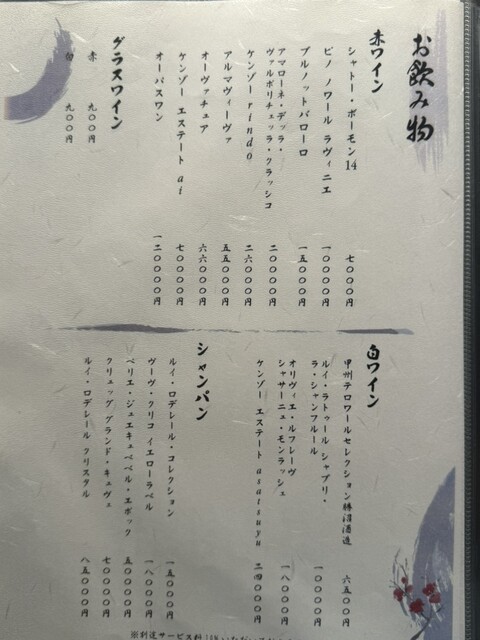 お飲み物
赤ワイン
シャトー・ボーモン14 七〇〇〇円
ピノ ノワール ラヴィニエ 一〇〇〇〇円
ブルノットバローロ 一五〇〇〇円
アマローネ・デッラ・
ヴァルポリチェッラ・クラッシコ 二〇〇〇〇円
ケンゾーrindo 二六〇〇〇円
アルマヴィーヴァ 五五〇〇〇円
オーヴァチュア 六六〇〇〇円
ケンゾー エステート ai 七〇〇〇〇円
オーパスワン 一二〇〇〇〇円
グラスワイン
赤 九〇〇円
白 九〇〇円
白ワイン
甲州テロワールセレクション勝沼酒造 六五〇〇円
ルイ・ラトゥール シャブリ・
ラ・シャンフルール 一〇〇〇〇円
オリヴィエ・ルフレーヴ
シャサーニュ・モンラッシェ 一八〇〇〇円
ケンゾー エステート asatsuyu 二四〇〇〇円
シャンパン
ルイ・ロデレール・コレクション 一五〇〇〇円
ヴーヴ・クリコ イエローラベル 一八〇〇〇円
ペリエ・ジュエキュベベル・エポック 五〇〇〇〇円
クリュッグ グランド・キュヴェ 七〇〇〇〇円
ルイ・ロデレール クリスタル 八五〇〇〇円
※別途サービス料10%いただいて